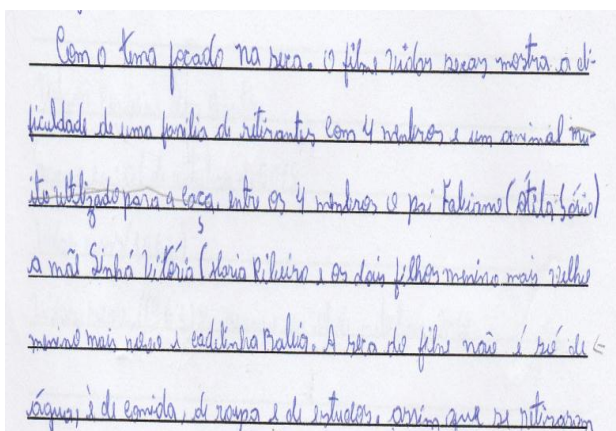 Com o tema focado na seca. O filme vidas secas mostra a di-
ficuldade de uma familia de retirantes com 4 membros e um animal mu-
ito ultilizado para a caça, entre os 4 membros o pai Fabiano (Átila Iório)
a mãe Sinhá Vitória (Maria Ribeiro e os dois filhos menino mais velho
menino mais novo e cadelinha Baleia. A seca do filme não é só de
água, è de comida, de roupa e de estudos, assim que se retiraram